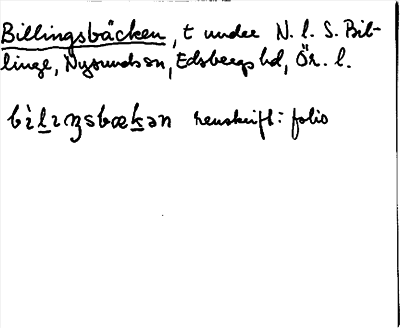 Billingsbäcken, t under N. l. S. Bil-
linge, Nysunds sn, Edsbergs hd, Ör. l.
bìlɩŋsbækən renskrift: folio